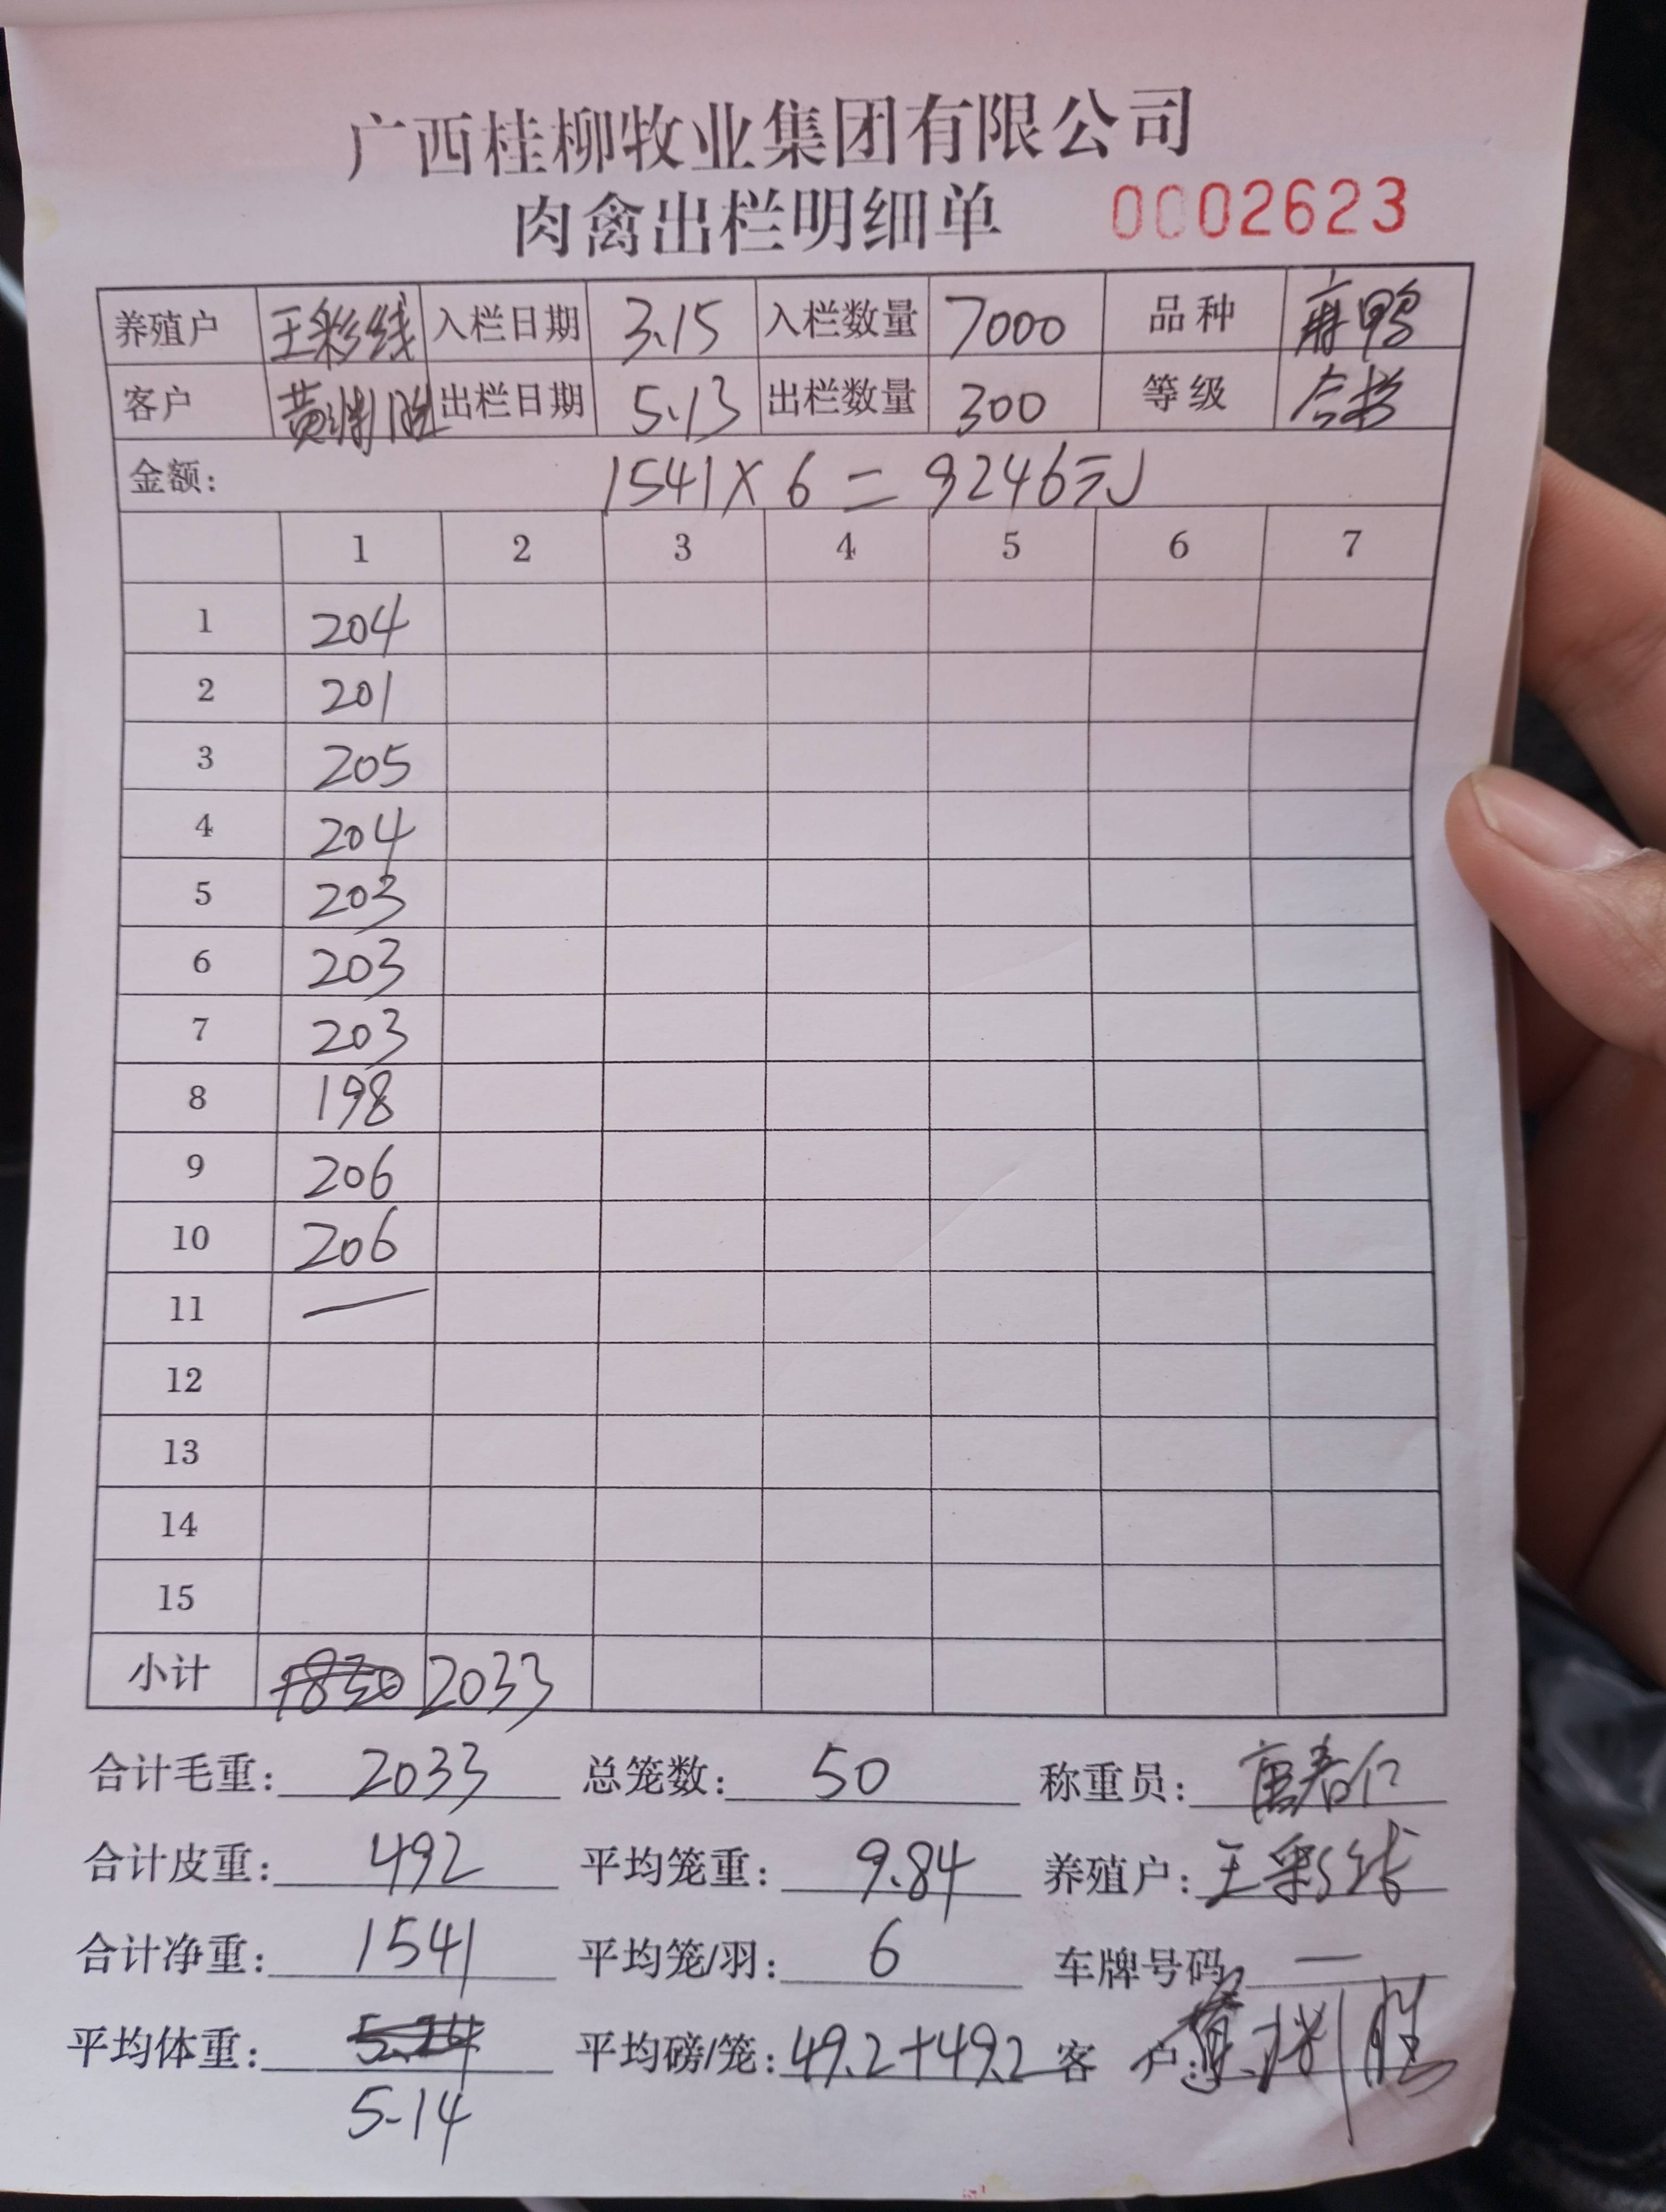 广西桂柳牧业集团有限公司
肉禽出栏明细单 0002623
养殖户 王彩线 入栏日期 3.15 入栏数量 7000 品种 麻鸭
客户 黄 胜 出栏日期 5.13 出栏数量 300 等级
金额: 1541×6=9246元
1 2 3 4 5 6 7
1 204
2 201
3 205
4 204
5 203
6 203
7 203
8 198
9 206
10 206
11 —
12
13
14
15
小计 1830 2033
合计毛重: 2033 总笼数: 50 称重员: 唐春仁
合计皮重: 492 平均笼重: 9.84 养殖户: 王彩线
合计净重: 1541 平均笼/羽: 6 车牌号码: —
平均体重: 平均磅/笼: 49.2+49.2 客 户: 黄 胜
5.14